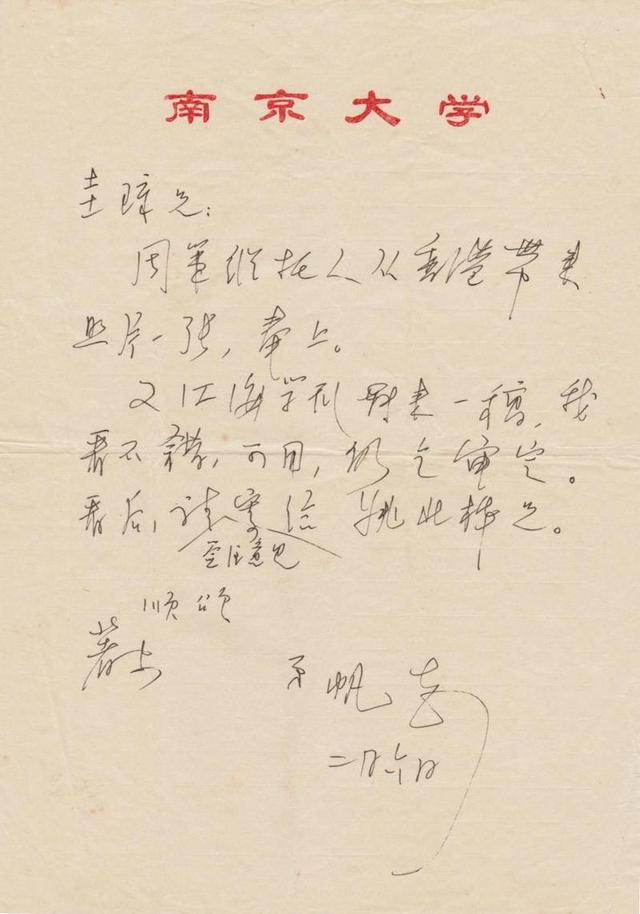 南京大学
圭璋兄：
周策纵托人从香港带来
照片一张，奉上。
又江海学刊附来一稿，我
看不错，可用，仍乞审定。
看后，请寄 姚北桦兄。
签注意见
顺颂
著安
弟 帆 
二月六日